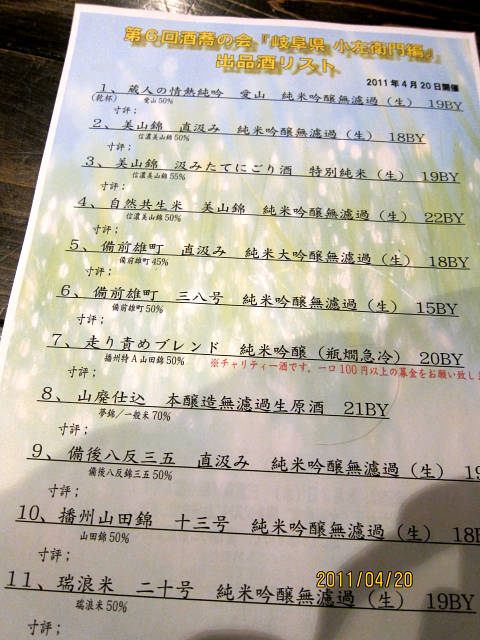 第6回酒蕎の会『岐阜県 小左衛門編』
出品酒リスト
2011年4月20日開催
1、蔵人の情熱純吟 愛山 純米吟醸無濾過（生） 19BY
(乾杯) 愛山50%
寸評；
2、美山錦 直汲み 純米吟醸無濾過（生） 18BY
信濃美山錦50%
寸評；
3、美山錦 汲みたてにごり酒 特別純米（生） 19BY
信濃美山錦55%
寸評；
4、自然共生米 美山錦 純米吟醸無濾過（生） 22BY
信濃美山錦50%
寸評；
5、備前雄町 直汲み 純米大吟醸無濾過（生） 18BY
備前雄町45%
寸評；
6、備前雄町 三八号 純米吟醸無濾過（生） 15BY
備前雄町50%
寸評；
7、走り責めブレンド 純米吟醸（瓶燗急冷） 20BY
播州特A山田錦50%
※チャリティー酒です。一口100円以上の募金をお願い致し
寸評；
8、山廃仕込 本醸造無濾過生原酒 21BY
夢錦／一般米70%
寸評；
9、備後八反三五 直汲み 純米吟醸無濾過（生） 19
備後八反錦三五50%
寸評；
10、播州山田錦 十三号 純米吟醸無濾過（生） 18B
山田錦50%
寸評；
11、瑞浪米 二十号 純米吟醸無濾過（生） 19BY
瑞浪米50%
寸評；
2011/04/20